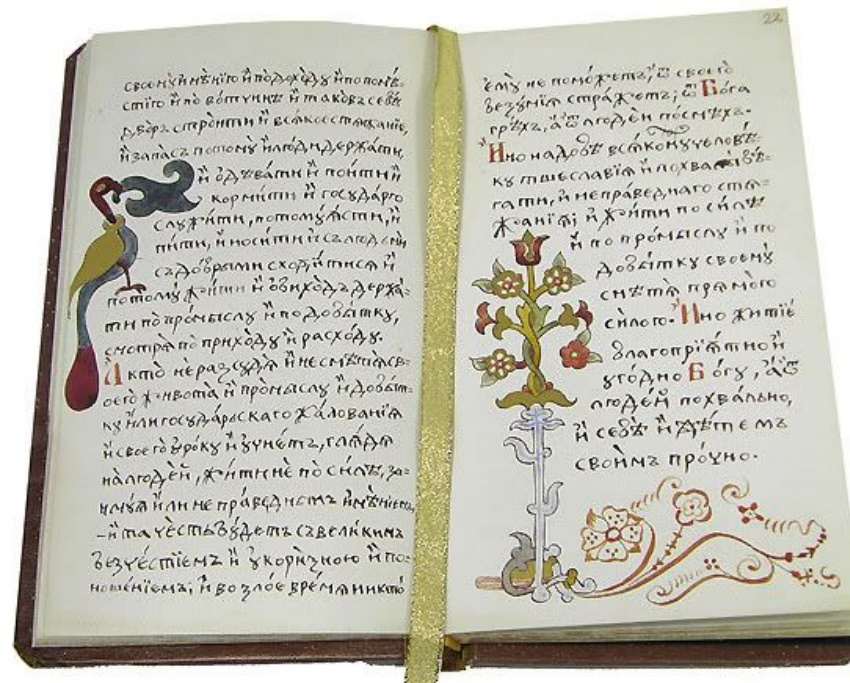 своемꙋ и҆мѣ́нїю и҆ по дохо́дꙋ и҆ по помѣ́-
стїю и҆ по во́тчинѣ и҆ тако́въ себѣ̀
дво́ръ стро́ити и҆ всѧ́кое стѧжа́нїе,
и҆ запа́съ потомꙋ̀ и҆ лю́ди держа́ти,
и҆ ѡ҆дѣва́ти и҆ пои́ти и҆
корми́ти и҆ госꙋда́рю
слꙋжи́ти, потомꙋ̀ ꙗ҆́сти, и҆
пи́ти, и҆ носи́ти и҆ съ людьмѝ
съ до́брыми сходи́тисѧ и҆
потомꙋ̀ жи́ти и҆ ѡ҆бихо́дъ держа́-
ти по про́мыслꙋ и҆ по добы́ткꙋ,
смотрѧ̀ по прихо́дꙋ и҆ расхо́дꙋ.
А҆ кто̀ не разсꙋдѧ̀ и҆ не смѣ́тѧсѧ св-
оегѡ̀ живота̀ и҆ про́мыслꙋ и҆ добы́т-
кꙋ и҆лѝ госꙋда́рьскаго жа́лованїѧ
и҆ своегѡ̀ ᲂу҆ро́кꙋ и҆ ᲂу҆чне́тъ, глѧдѧ̀
на люде́й, жи́ти не по си́лѣ, за-
има́ѧ и҆лѝ непра́веднымъ и҆мѣ́нїемъ,
– и҆ та̀ че́сть бꙋ́детъ съ вели́кимъ
безче́стїемъ и҆ ᲂу҆кори́зною и҆ по-
ноше́нїемъ; и҆ во зло́е вре́мѧ никто̀
22
є҆мꙋ̀ не помо́жетъ; и҆ ѿ своегѡ̀
безꙋ́мїѧ стра́жетъ; ѿ Бо́га
грѣ́хъ, а҆ ѿ люде́й посмѣ́хъ.
И҆но на́добѣ всѧ́комꙋ человѣ́-
кꙋ тщесла́вїѧ и҆ похвалы̀ бѣ́-
гати, и҆ непра́веднаго стѧ-
жа́нїѧ; и҆ жи́ти по си́лѣ
и҆ по про́мыслꙋ и҆ по
добы́ткꙋ своемꙋ̀
смѣ́тѧ прѧмо́го
си́лого. И҆но житїѐ
благопрїѧ́тно и҆
ᲂу҆го́дно Бо́гꙋ, а҆ ѿ
люде́й похва́льно,
и҆ себѣ̀ и҆ дѣ́темъ
свои́мъ про́чно.